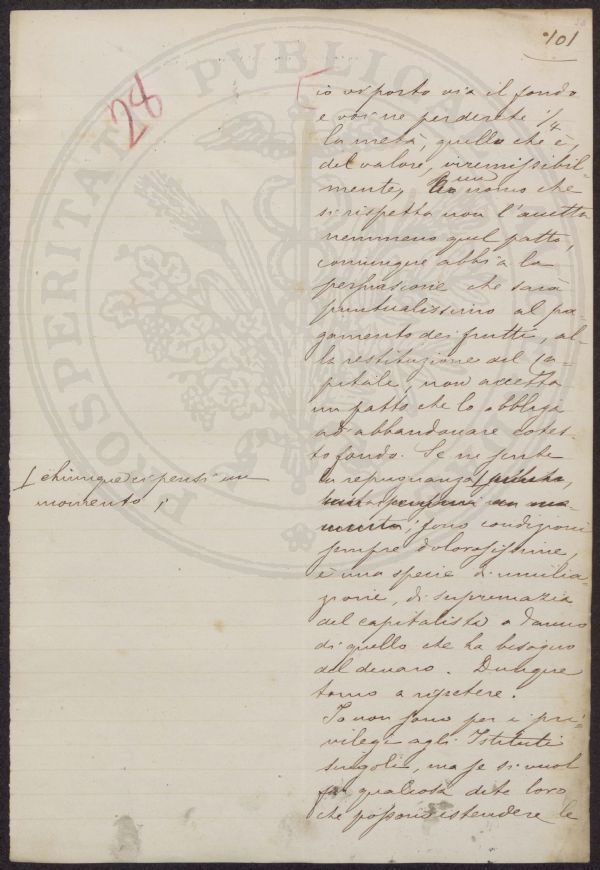 101
28
io vi porto via il fondo
e voi ne perderete 1/4
la metà, quello che è,
del valore, irremissibil-
mente, un uomo che
si rispetta non l'accetta
nemmeno quel patto,
comunque abbia la
persuasione che sarà
puntualissimo al pa-
gamento dei frutti, al-
la restituzione del ca-
pitale, non accetta
un patto che lo obbliga
ad abbandonare cotes-
to fondo. Se ne sente
la repugnanza
chiunque ci pensi un
momento;
sono condizioni
sempre dolorosissime,
è una specie di umilia-
zione, di supremazia
del capitalista a danno
di quello che ha bisogno
del denaro. Dunque
torno a ripetere.
Io non sono per i pri-
vilegi agli Istituti
singoli, ma se si vuol
far qualcosa dite loro
che possono estendere le
PROSPERITATI PVBLICAE